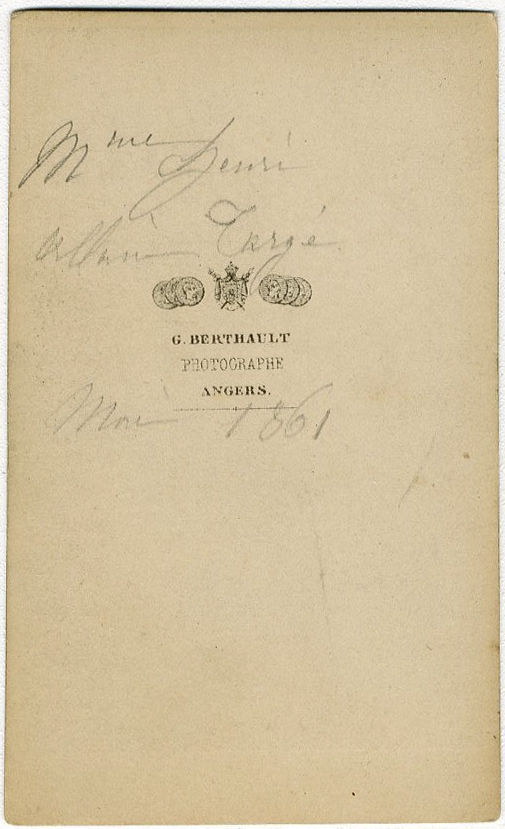 Mme Henri
Allain Targé
G. BERTHAULT
PHOTOGRAPHE
ANGERS.
1861